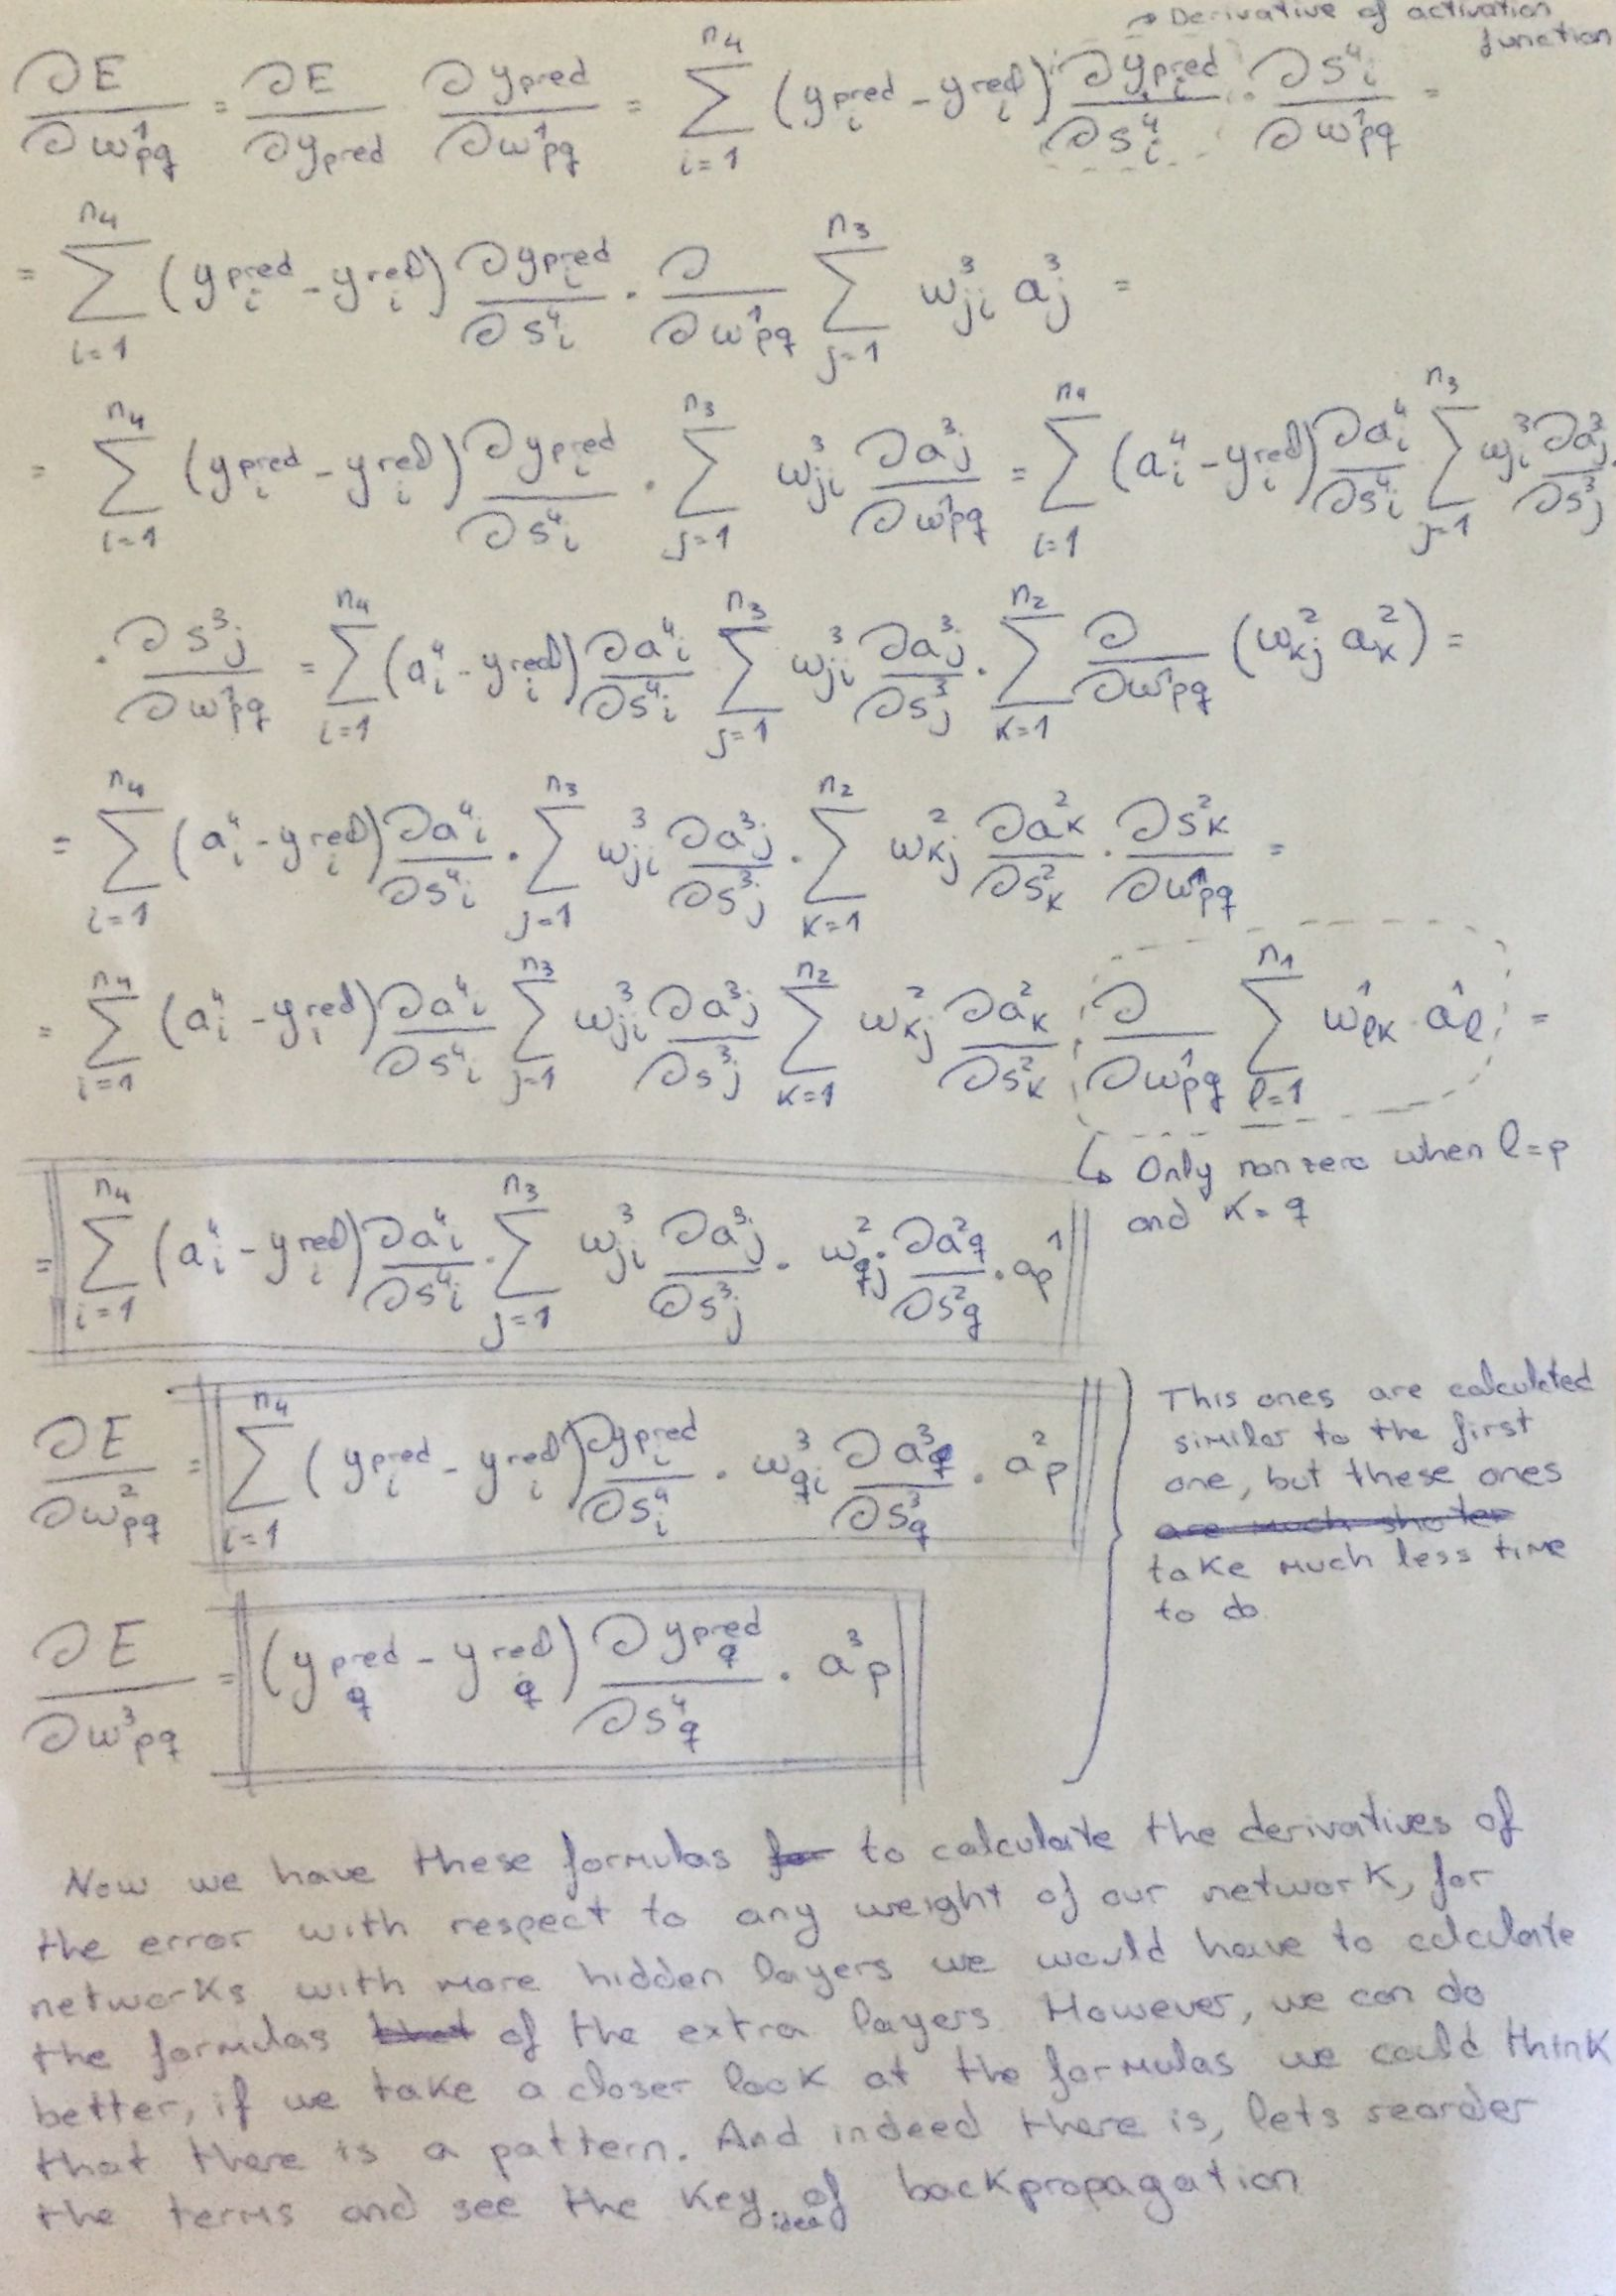 → Derivative of activation
function
∂E/∂w¹pq = ∂E/∂ypred ∂ypred/∂w¹pq = Σ_{i=1}^{n4} (y_i^pred - y_i^real) ∂y_i^pred/∂s⁴i · ∂s⁴i/∂w¹pq =
= Σ_{i=1}^{n4} (y_i^pred - y_i^real) ∂y_i^pred/∂s⁴i · ∂/∂w¹pq Σ_{j=1}^{n3} w³ji a³j =
= Σ_{i=1}^{n4} (y_i^pred - y_i^real) ∂y_i^pred/∂s⁴i · Σ_{j=1}^{n3} w³ji ∂a³j/∂w¹pq = Σ_{i=1}^{n4} (a⁴i - y_i^real) ∂a⁴i/∂s⁴i Σ_{j=1}^{n3} w³ji ∂a³j/∂s³j ·
· ∂s³j/∂w¹pq = Σ_{i=1}^{n4} (a⁴i - y_i^real) ∂a⁴i/∂s⁴i Σ_{j=1}^{n3} w³ji ∂a³j/∂s³j · Σ_{k=1}^{n2} ∂/∂w¹pq (w²kj a²k) =
= Σ_{i=1}^{n4} (a⁴i - y_i^real) ∂a⁴i/∂s⁴i · Σ_{j=1}^{n3} w³ji ∂a³j/∂s³j · Σ_{k=1}^{n2} w²kj ∂a²k/∂s²k · ∂s²k/∂w¹pq =
= Σ_{i=1}^{n4} (a⁴i - y_i^real) ∂a⁴i/∂s⁴i Σ_{j=1}^{n3} w³ji ∂a³j/∂s³j Σ_{k=1}^{n2} w²kj ∂a²k/∂s²k · ∂/∂w¹pq Σ_{l=1}^{n1} w¹lk · a¹l =
↳ Only non zero when l=p
and k=q
= Σ_{i=1}^{n4} (a⁴i - y_i^real) ∂a⁴i/∂s⁴i · Σ_{j=1}^{n3} w³ji ∂a³j/∂s³j · w²qj ∂a²q/∂s²q · a¹p
∂E/∂w²pq = Σ_{i=1}^{n4} (y_i^pred - y_i^real) ∂y_i^pred/∂s⁴i · w³qi ∂a³q/∂s³q · a²p
∂E/∂w³pq = (y_q^pred - y_q^real) ∂y_q^pred/∂s⁴q · a³p
This ones are calculated
similar to the first
one, but these ones
are much shorter
take much less time
to do
Now we have these formulas for to calculate the derivatives of
the error with respect to any weight of our network, for
networks with more hidden layers we would have to calculate
the formulas that of the extra layers. However, we can do
better, if we take a closer look at the formulas we could think
that there is a pattern. And indeed there is, lets reorder
the terms and see the key idea of backpropagation